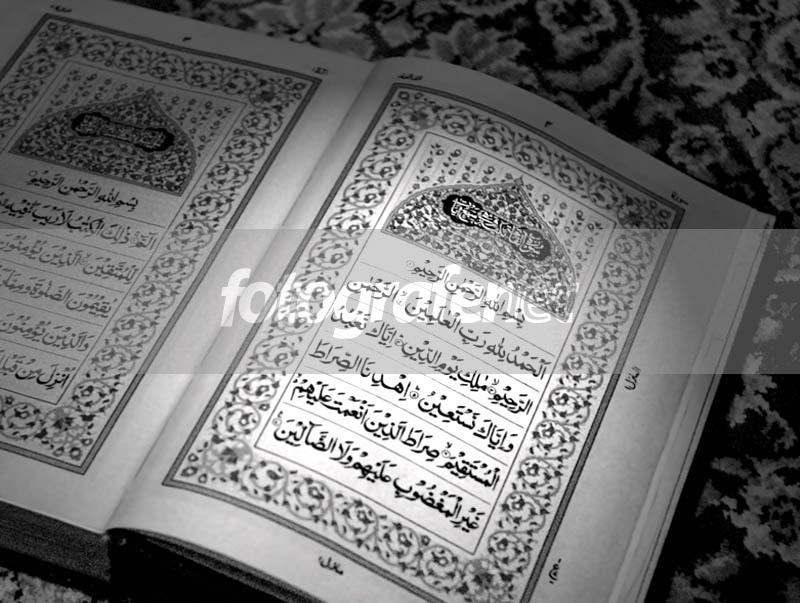 بِسْمِ اللهِ الرَّحْمٰنِ الرَّحِيْمِ
اَلْحَمْدُ لِلّٰهِ رَبِّ الْعٰلَمِيْنَ الرَّحْمٰنِ
الرَّحِيْمِ مٰلِكِ يَوْمِ الدِّيْنِ اِيَّاكَ نَعْبُدُ
وَاِيَّاكَ نَسْتَعِيْنُ اِهْدِنَا الصِّرَاطَ
الْمُسْتَقِيْمَ صِرَاطَ الَّذِيْنَ اَنْعَمْتَ عَلَيْهِمْ
غَيْرِ الْمَغْضُوْبِ عَلَيْهِمْ وَلَا الضَّآلِّيْنَ
٣
بِسْمِ اللهِ الرَّحْمٰنِ الرَّحِيْمِ
الٓمّٓ ذٰلِكَ الْكِتٰبُ لَا رَيْبَ فِيْهِ
لِلْمُتَّقِيْنَ الَّذِيْنَ يُؤْمِنُوْنَ
يُقِيْمُوْنَ الصَّلٰوةَ وَمِمَّا
وَالَّذِيْنَ يُؤْمِنُوْنَ
اُنْزِلَ مِنْ قَبْلِ
fotografer.net